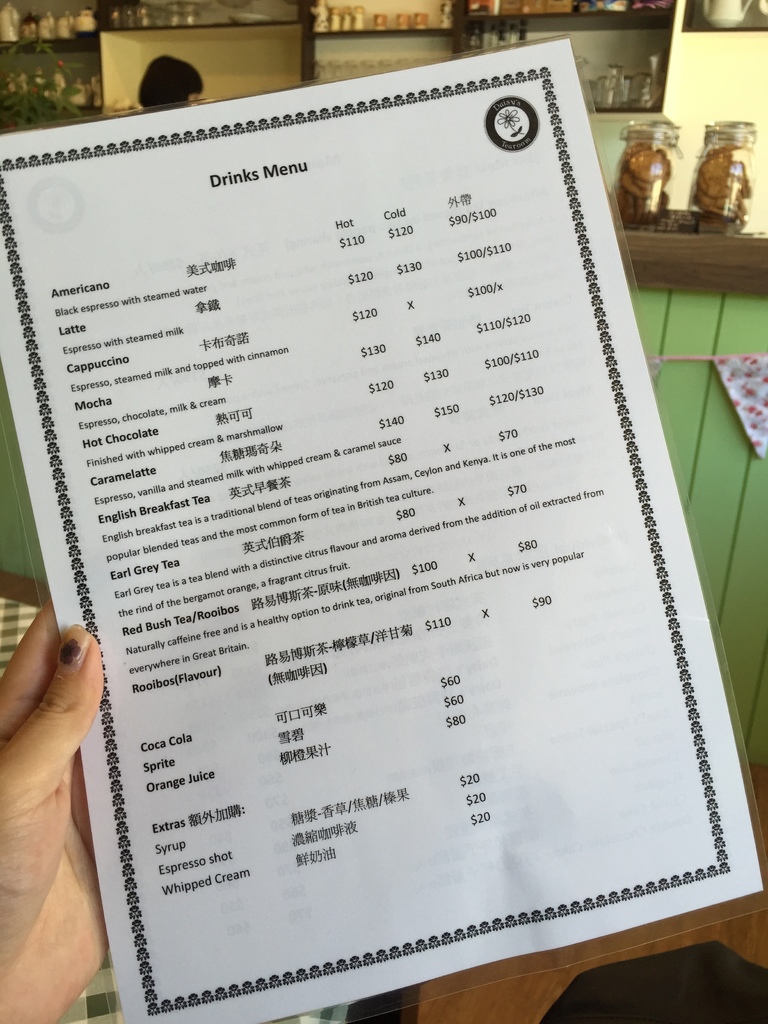 Daisy's
Tearoom
Drinks Menu
Hot Cold 外帶
Americano 美式咖啡 $110 $120 $90/$100
Black espresso with steamed water
Latte 拿鐵 $120 $130 $100/$110
Espresso with steamed milk
Cappuccino 卡布奇諾 $120 X $100/x
Espresso, steamed milk and topped with cinnamon
Mocha 摩卡 $130 $140 $110/$120
Espresso, chocolate, milk & cream
Hot Chocolate 熱可可 $120 $130 $100/$110
Finished with whipped cream & marshmallow
Caramelatte 焦糖瑪奇朵 $140 $150 $120/$130
Espresso, vanilla and steamed milk with whipped cream & caramel sauce
English Breakfast Tea 英式早餐茶 $80 X $70
English breakfast tea is a traditional blend of teas originating from Assam, Ceylon and Kenya. It is one of the most
popular blended teas and the most common form of tea in British tea culture.
Earl Grey Tea 英式伯爵茶 $80 X $70
Earl Grey tea is a tea blend with a distinctive citrus flavour and aroma derived from the addition of oil extracted from
the rind of the bergamot orange, a fragrant citrus fruit.
Red Bush Tea/Rooibos 路易博斯茶-原味(無咖啡因) $100 X $80
Naturally caffeine free and is a healthy option to drink tea, original from South Africa but now is very popular
everywhere in Great Britain.
Rooibos(Flavour) 路易博斯茶-檸檬草/洋甘菊 $110 X $90
(無咖啡因)
Coca Cola 可口可樂 $60
Sprite 雪碧 $60
Orange Juice 柳橙果汁 $80
Extras 額外加購:
Syrup 糖漿-香草/焦糖/榛果 $20
Espresso shot 濃縮咖啡液 $20
Whipped Cream 鮮奶油 $20